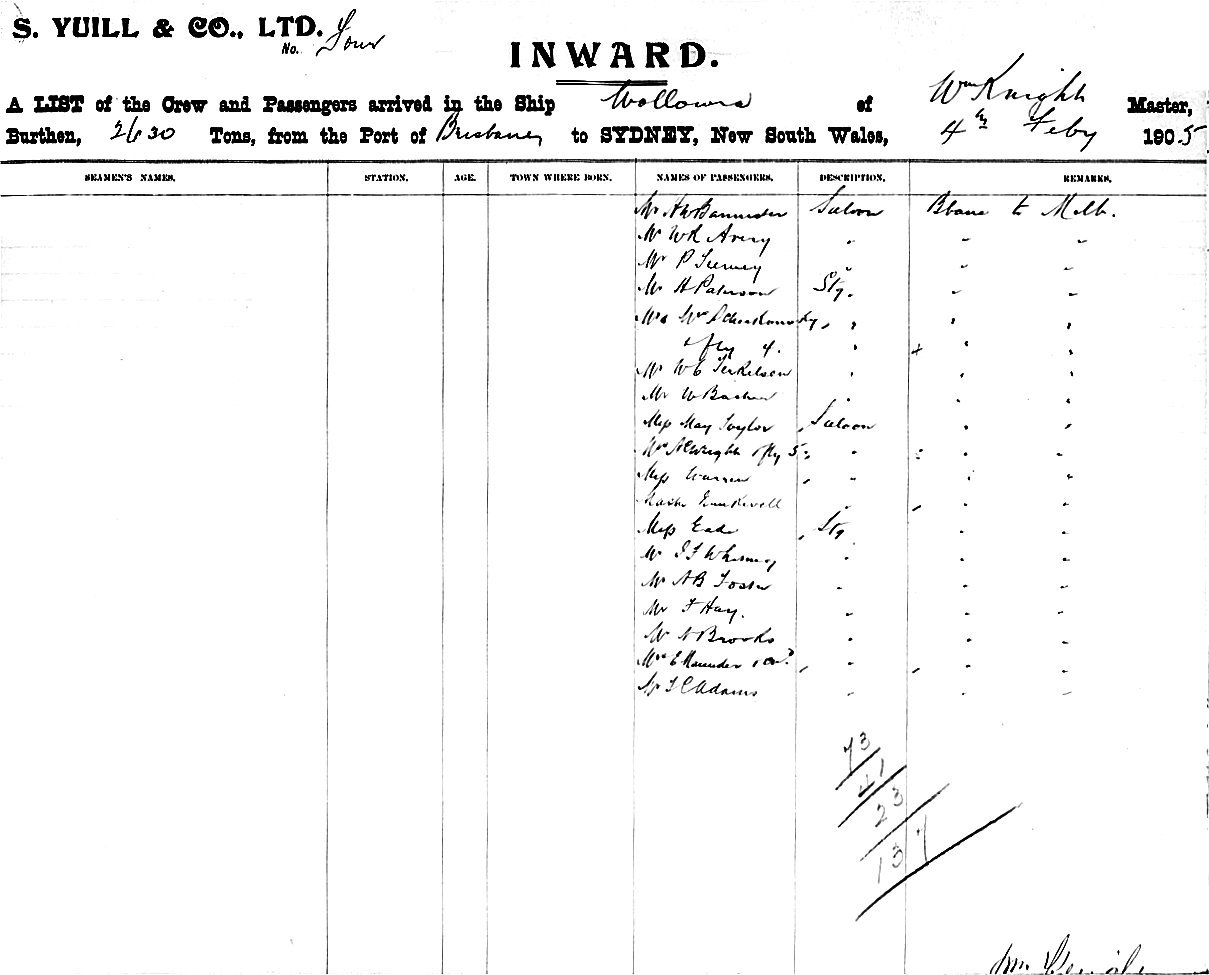 S. YUILL & CO., LTD.
No. Four
INWARD.
A LIST of the Crew and Passengers arrived in the Ship Wollowra of Wm Knight Master,
Burthen, 2630 Tons, from the Port of Brisbane to SYDNEY, New South Wales, 4th Feby 1905
SEAMEN'S NAMES. STATION. AGE. TOWN WHERE BORN. NAMES OF PASSENGERS. DESCRIPTION. REMARKS.
Mr A W Bannister Saloon Bbane to Melb.
Mr W R Avery " " "
Mr P Tierney " " "
Mr A Paterson Stg. " "
Mrs " " "
& fly 4. " + " "
Mr W C Terkelsen " " "
Mr W " " "
Miss May Taylor Saloon " "
A C Wright fly 5 " " "
Miss Warren " " "
" " "
Miss Stg " "
Mr " " "
Mr A B Foster " " "
Mr F Hay. " " "
Mr A Brooks " " "
Mrs E " " "
Mr F C Adams " " "
73
41
23
137
Wm Knight